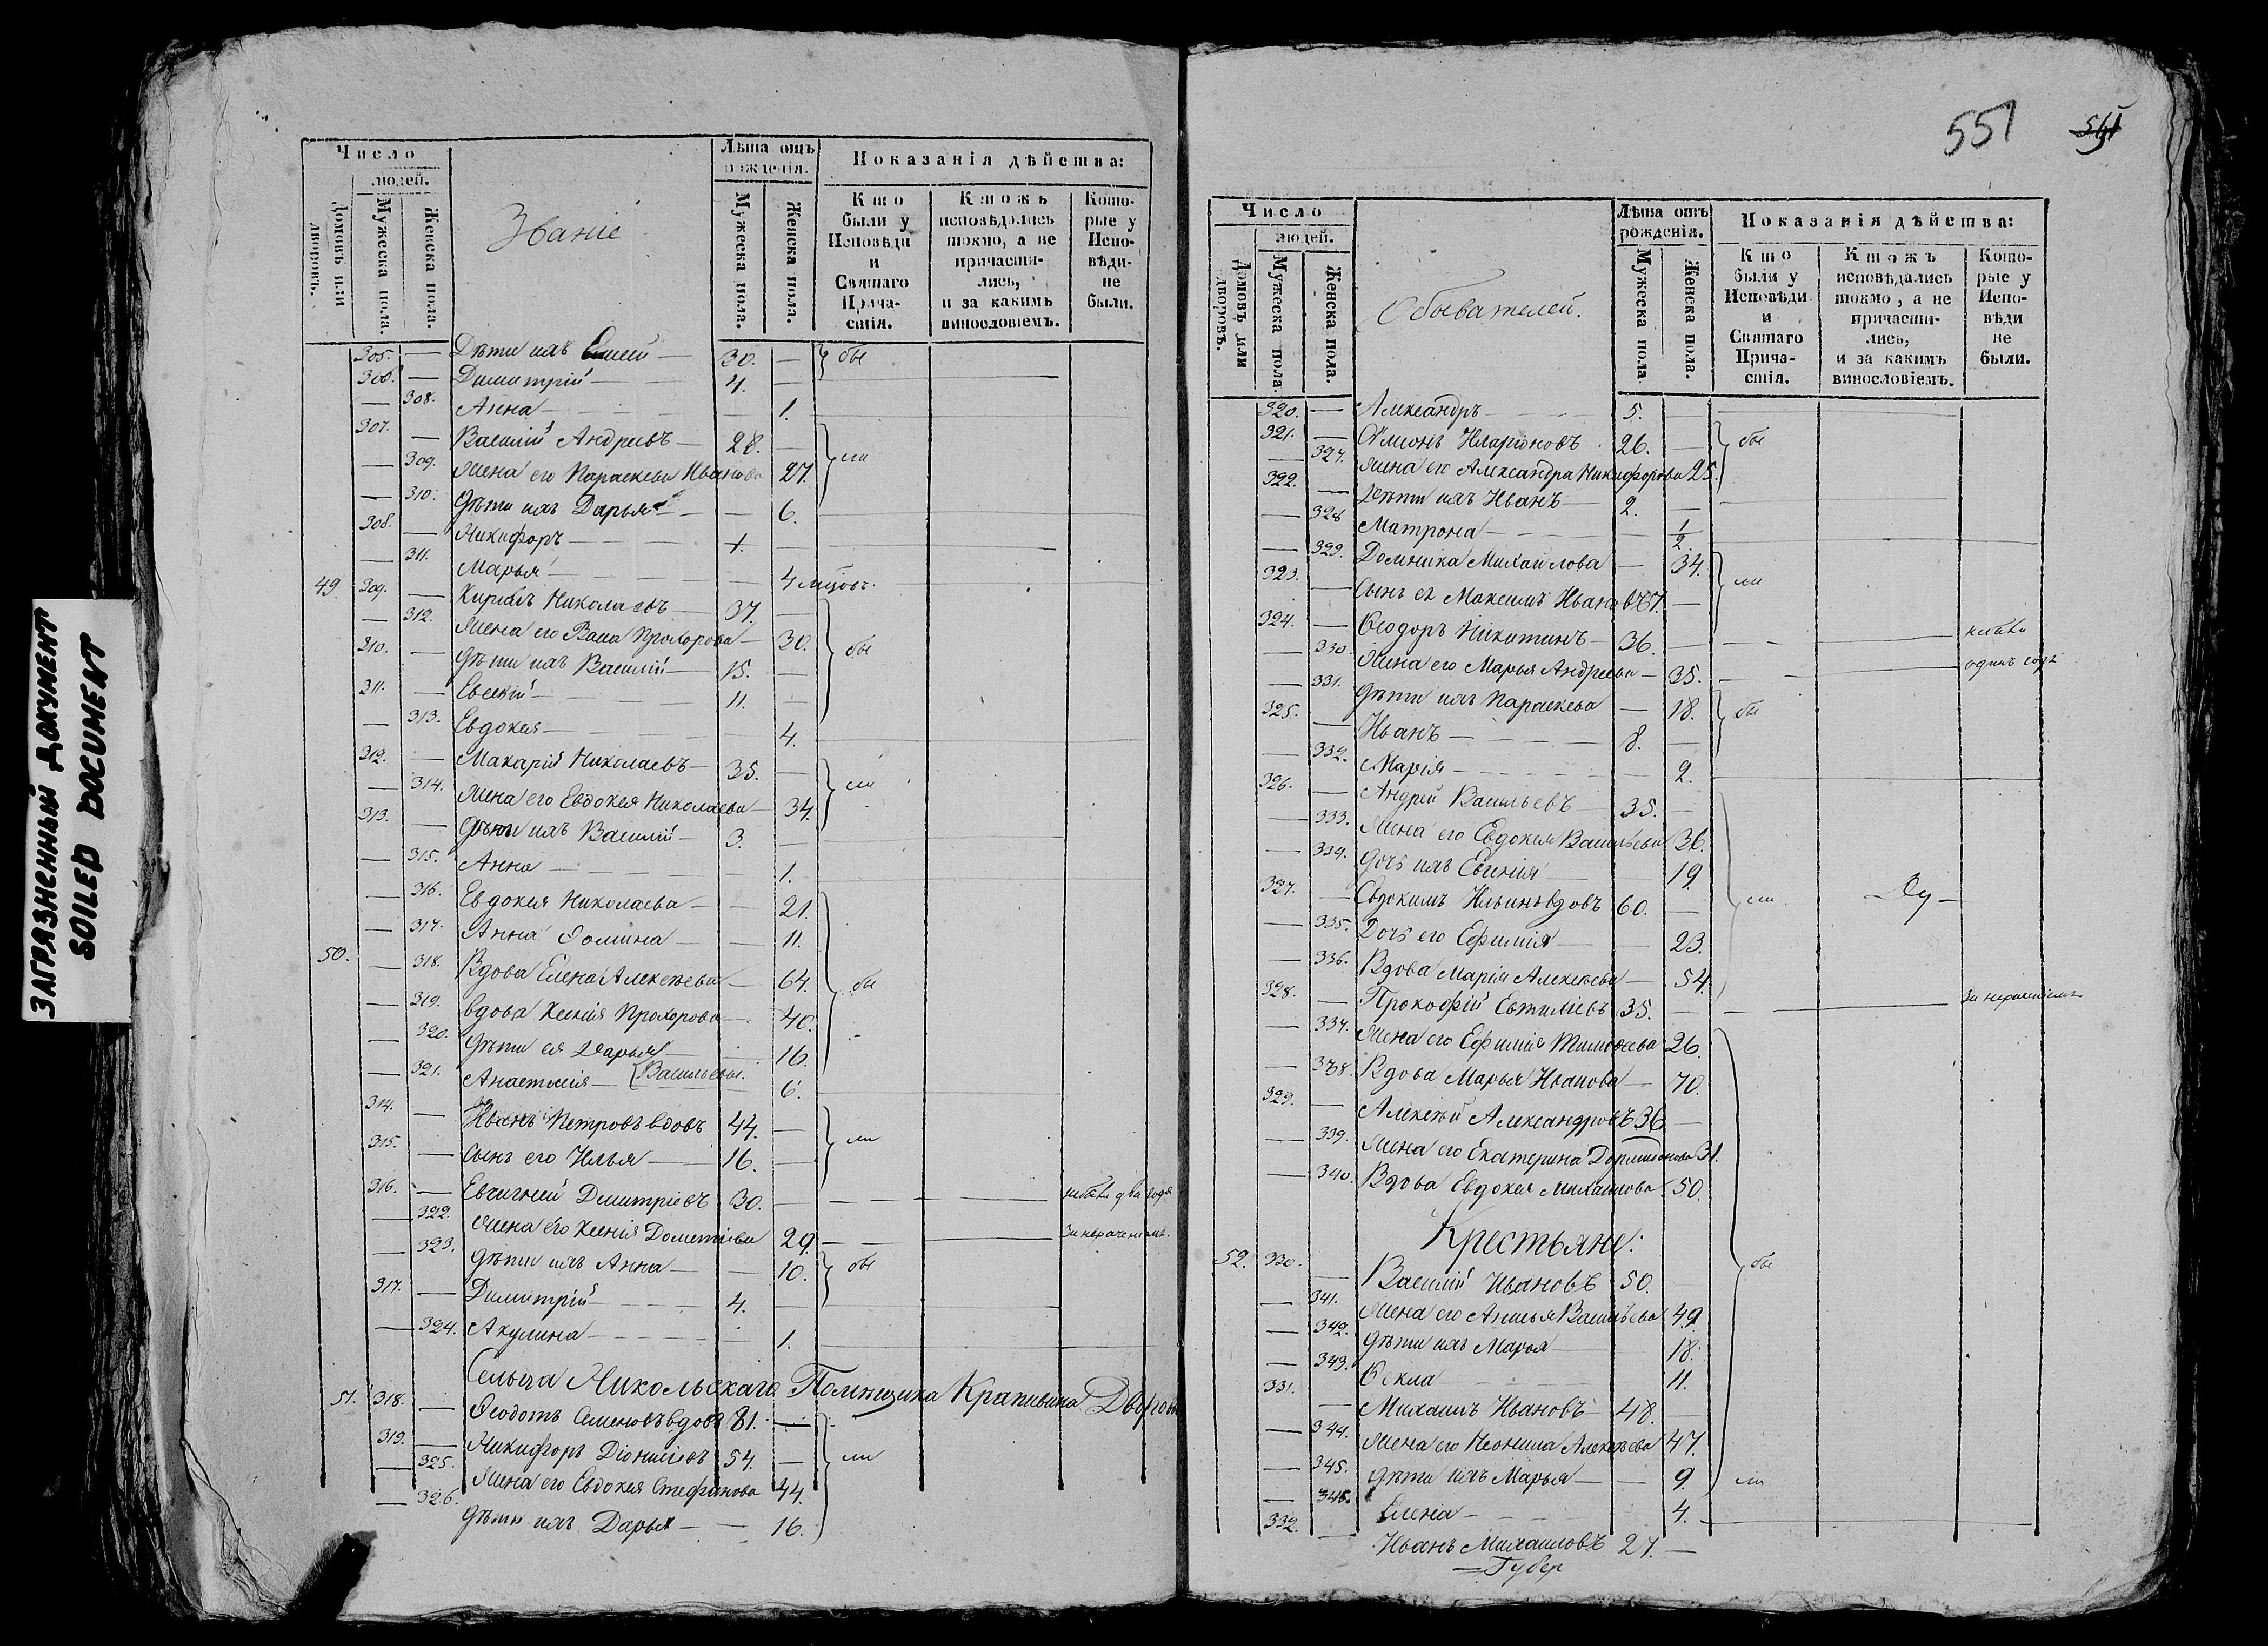 ЗАГРЯЗНЕННЫЙ ДОКУМЕНТ
SOILED DOCUMENT
Число
людей.
Домовъ или дворовъ.
Мужеска пола.
Женска пола.
Званіе
Лѣта отъ рожденія.
Мужеска пола.
Женска пола.
Показанія дѣйства:
Кто были у Исповѣди и Святаго Прича- стія.
Ктожъ исповѣдались токмо, а не причасти- лись, и за какимъ винословіемъ.
Кото- рые у Испо- вѣди- не были.
305. — Дѣти ихъ — 30. — бы
306. — Димитрій — 4. —
— 308. Анна — 1.
307. — Василій Андреевъ — 28. — ли
— 309. Жена его Параскева Иванова 27.
— 310. Дѣти ихъ Дарья — 6.
308. — Никифоръ — 1. —
— 311. Марья — 4 мѣсяц.
49. 309. — Кирилъ Николаевъ — 37. — бы
— 312. Жена его Прохорова — 30.
310. — Дѣти ихъ Василій — 15. —
311. — Евсевій — 11. —
— 313. Евдокея — 4.
312. — Макарій Николаевъ — 35. — ли
— 314. Жена его Евдокея Николаева — 34.
313. — Дѣти ихъ Василій — 3. —
— 315. Анна — 1.
— 316. Евдокея Николаева — 21. бы
— 317. Анна Фомина — 11.
50. — 318. Вдова Елена Алексѣева — 64.
— 319. вдова Ксенія Прохорова — 40.
— 320. Дѣти ея Дарья — 16.
— 321. Анастасія — Васильевы. 6.
314. — Иванъ Петровъ вдовъ 44. — ли
315. — Сынъ его Илья — 16. —
316. — Евгигней Дмитріевъ 30. — небыли два года
— 322. Жена его Ксенія Дометіева 29. — за нераченіемъ.
— 323. Дѣти ихъ Анна — 10. бы
317. — Димитрій — 4. —
— 324. Акулина — 1.
Сельца Никольскаго Помѣщика Крапивина Дворов
51. 318. — Ѳеодотъ Семеновъ вдовъ 81. — ли
319. — Никифоръ Діонисіевъ 54. —
— 325. Жена его Евдокея Стефанова 44.
— 326. Дѣти ихъ Дарья — 16.
551
Число
людей.
Домовъ или дворовъ.
Мужеска пола.
Женска пола.
Обывателей.
Лѣта отъ рожденія.
Мужеска пола
Женска пола.
Показанія дѣйства:
Кто были у Исповѣди и Святаго Прича- стія.
Ктожъ исповѣдались токмо, а не причасти- лись, и за какимъ винословіемъ.
Кото- рые у Испо- вѣди не были.
320. — Александръ — 5. —
321. — Сѵмеонъ Иларіоновъ. 26. — бы
— 327. Жена его Александра Никифорова 25.
322. — Дѣти ихъ Иванъ — 2. —
— 328 Матрона — 1/2
— 329. Домника Михайлова — 34. ли
323. — Сынъ ея Максимъ Ивановъ 67. —
324. — Ѳеодоръ Никитинъ — 36. — небыли
— 330. Жена его Марья Андреева — 35. — одинъ годъ
— 331. Дѣти ихъ Параскева — 18. бы
325. — Иванъ — 8. —
— 332. Марія — 2.
326. — Андрей Васильевъ — 35. —
— 333. Жена его Евдокея Васильева 36.
— 334. Дочь ихъ Евгенія 19.
327. — Евдокимъ Ильинъ вдовъ 60. — ли
— 335. Дочь его Ефимія — 23.
— 336. Вдова Марія Алексѣева — 54.
328. — Прокофій Евтихіевъ 35. — за нераченіемъ
— 337. Жена его Ефимія Тимоѳеева 26.
— 338. Вдова Марья Иванова — 70.
329. — Алексѣй Александровъ 36 —
— 339. Жена его Екатерина Дормидонова 31.
— 340. Вдова Евдокея Михаилова. 50.
Крестьяне:
52. 330. — Василій Ивановъ 50. бы
— 341. Жена его Анисья Васильева 49
— 342. Дѣти ихъ Марья 18.
— 343. Ѳекла — 11.
331. — Михаилъ Ивановъ 48. —
— 344. Жена его Неонила Алексѣева 47.
— 345. Дѣти ихъ Марья — 9. ли
— 346. Елена — 4.
332. — Иванъ Михаиловъ 27. —
Губер